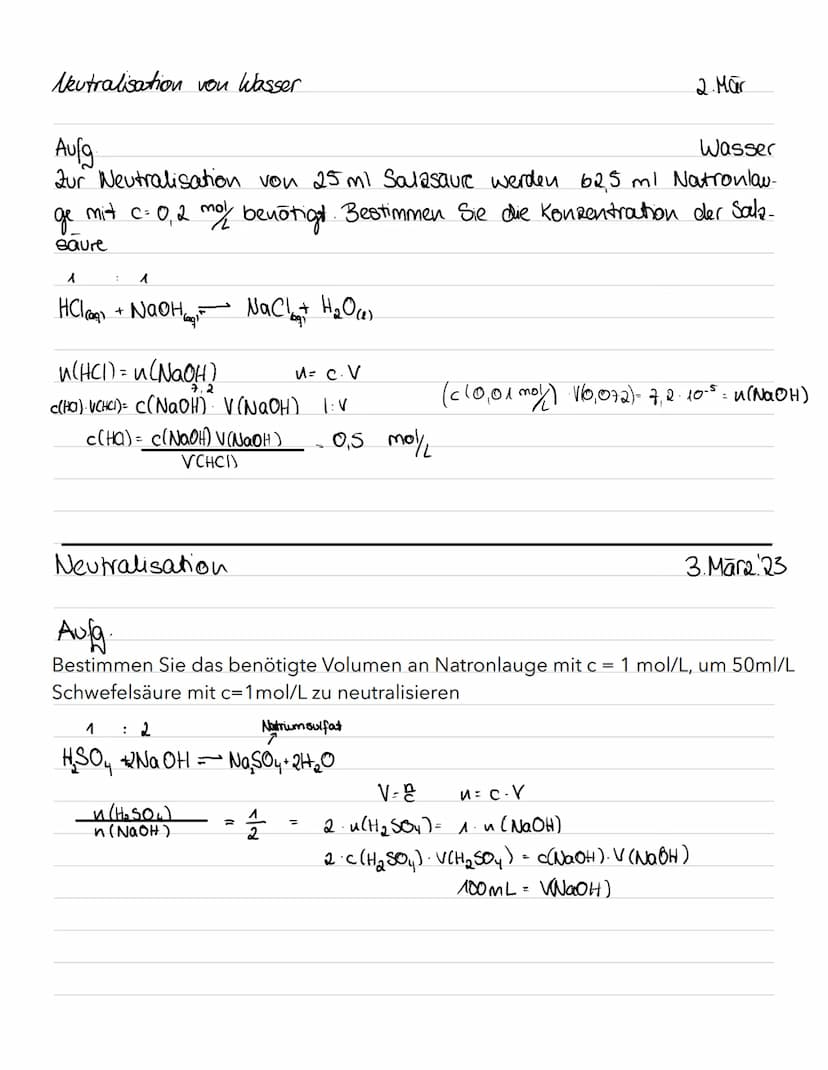 Neutralisation von Wasser 2. Mär
Aufg. Wasser
Zur Neutralisation von 25 ml Salzsäure werden 62,5 ml Natronlau-
ge mit c= 0,2 mol/L benötigt. Bestimmen Sie die Konzentration der Salz-
säure
1 : 1
HCl(aq) + NaOH(aq) ⇌ NaCl(aq) + H₂O(l)
n(HCl) = n(NaOH) n= c·V
7,2
c(HCl)·V(HCl)= c(NaOH)· V(NaOH) |:V (c(0,01 mol/L) · V(0,072)= 7,2·10⁻⁵ = n(NaOH)
c(HCl)= c(NaOH) V(NaOH) / V(HCl) = 0,5 mol/L
Neutralisation 3. März '23
Aufg.
Bestimmen Sie das benötigte Volumen an Natronlauge mit c = 1 mol/L, um 50ml/L
Schwefelsäure mit c=1mol/L zu neutralisieren
1 : 2 Natriumsulfat
H₂SO₄ + 2NaOH ⇌ Na₂SO₄ + 2H₂O
V= n/c n= c·V
n(H₂SO₄) / n(NaOH) = 1/2 = 2 · n(H₂SO₄)= 1· n(NaOH)
2·c(H₂SO₄)·V(H₂SO₄) = c(NaOH)·V(NaOH)
100mL = V(NaOH)